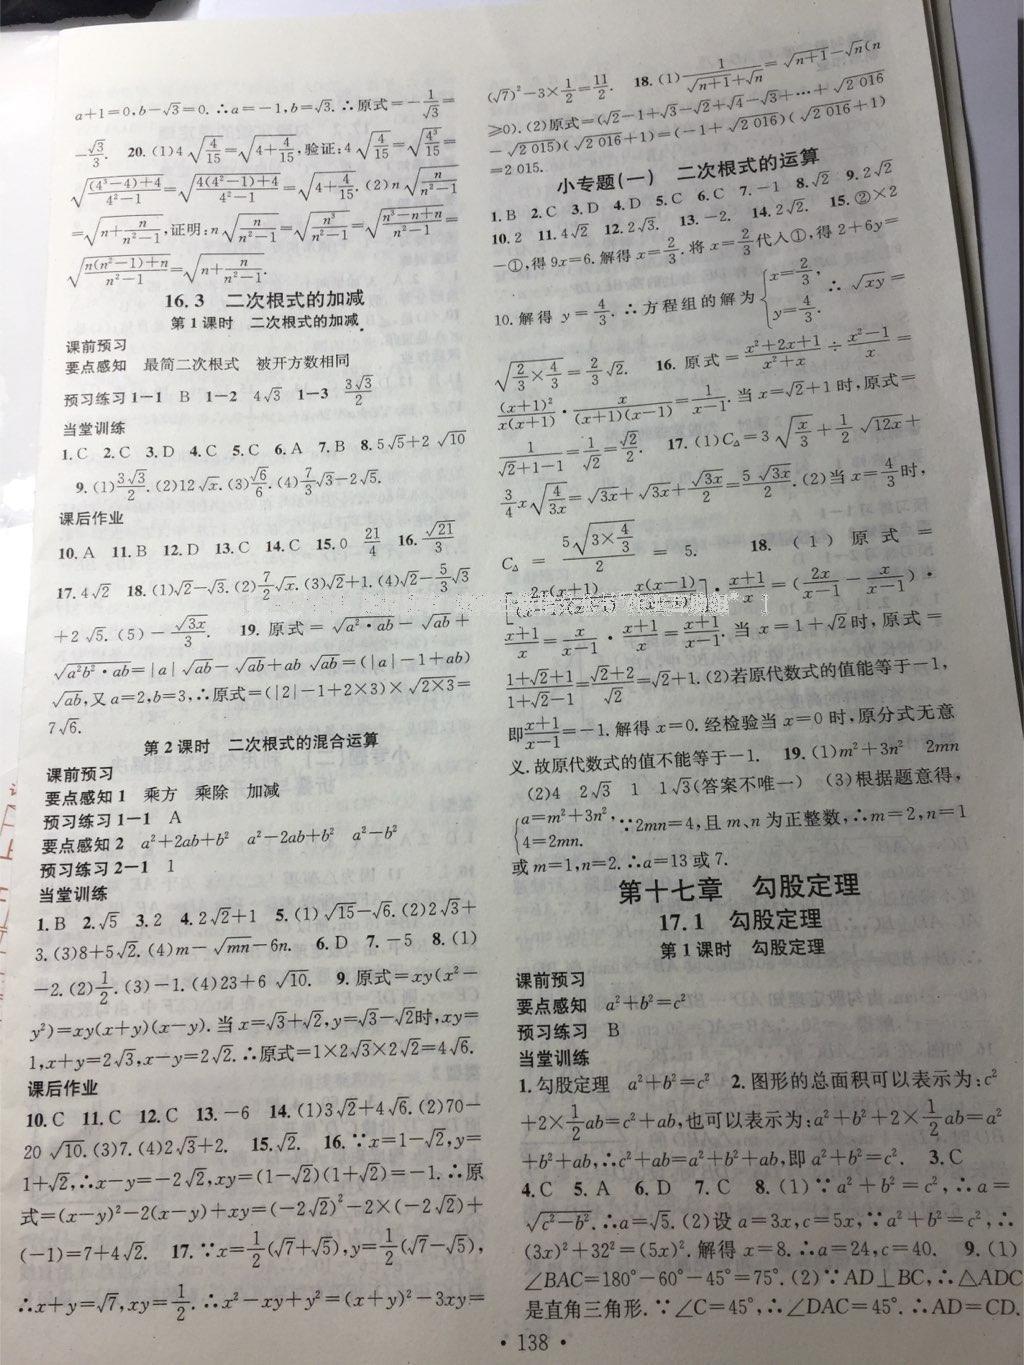 a+1=0,b−√3=0.∴a=−1,b=√3.∴原式=−1/√3=
−√3/3. 20.(1)4√(4/15)=√(4+4/15),验证:4√(4/15)=√(4³/15)=
√(((4³−4)+4)/(4²−1))=√((4(4²−1)+4)/(4²−1))=√(4+4/15).(2)n√(n/(n²−1))
=√(n+n/(n²−1)),证明:n√(n/(n²−1))=√(n³/(n²−1))=√((n³−n+n)/(n²−1))=
√((n(n²−1)+n)/(n²−1))=√(n+n/(n²−1)).
16.3 二次根式的加减
第1课时 二次根式的加减
课前预习
要点感知 最简二次根式 被开方数相同
预习练习1−1 B 1−2 4√3 1−3 3√3/2
当堂训练
1.C 2.C 3.D 4.C 5.C 6.A 7.B 8.5√5+2√10
9.(1)3√3/2.(2)12√x.(3)√6/6.(4)7/3√3−2√5.
课后作业
10.A 11.B 12.D 13.C 14.C 15.0 21/4 16.√21/3
17.4√2 18.(1)√2−√3.(2)7/2√x.(3)√2+1.(4)√2−5/3√3
+2√5.(5)−√3x/3. 19.原式=√(a²·ab)−√ab+
√(a²b²·ab)=|a|√ab−√ab+ab√ab=(|a|−1+ab)
√ab,又a=2,b=3,∴原式=(|2|−1+2×3)×√(2×3)=
7√6.
第2课时 二次根式的混合运算
课前预习
要点感知1 乘方 乘除 加减
预习练习1−1 A
要点感知2 a²+2ab+b² a²−2ab+b² a²−b²
预习练习2−1 1
当堂训练
1.B 2.√5 3.2 4.2√2+1 5.(1)√15−√6.(2)2√3+
3.(3)8+5√2.(4)m−√mn−6n. 6.D 7.−5 8.(1)
−2.(2)1/2.(3)−1.(4)23+6√10. 9.原式=xy(x²−
y²)=xy(x+y)(x−y).当x=√3+√2,y=√3−√2时,xy=
1,x+y=2√3,x−y=2√2.∴原式=1×2√3×2√2=4√6.
课后作业
10.C 11.C 12.C 13.−6 14.(1)3√2+4√6.(2)70−
20√10.(3)7.(4)2√3+2. 15.√2. 16.∵x=1−√2,y=
1+√2,∴x−y=−2√2,xy=(1−√2)(1+√2)=−1.∴原
式=(x−y)²−2(x−y)+xy=(−2√2)²−2×(−2√2)+
(−1)=7+4√2. 17.∵x=1/2(√7+√5),y=1/2(√7−√5),
∴x+y=√7,xy=1/2.∴x²−xy+y²=(x+y)²−3xy=
(√7)²−3×1/2=11/2. 18.(1)1/(√(n+1)+√n)=√(n+1)−√n(n
≥0).(2)原式=(√2−1+√3−√2+√4−√3+…+√2 016
−√2 015)(√2 016+1)=(−1+√2 016)(√2 016+1)
=2 015.
小专题(一) 二次根式的运算
1.B 2.C 3.D 4.D 5.C 6.C 7.−1 8.√2 9.2√2
10.2 11.4√2 12.2√3. 13.−2. 14.2√2. 15.②×2
−①,得9x=6.解得x=2/3.将x=2/3代入①,得2+6y=
10.解得y=4/3.∴方程组的解为{x=2/3, y=4/3.∴√xy=
√(2/3×4/3)=2/3√2. 16.原式=(x²+2x+1)/(x²+x)÷(x²−1)/x=
(x+1)²/(x(x+1))·x/((x+1)(x−1))=1/(x−1).当x=√2+1时,原式=
1/(√2+1−1)=1/√2=√2/2. 17.(1)C△=3√(x/3)+1/2√12x+
3/4x√(4/3x)=√3x+√3x+√3x/2=5√3x/2.(2)当x=4/3时,
C△=5√(3×4/3)/2=5. 18.(1)原式=
[2x(x+1) x(x−1)]·(x+1)/x=(2x/(x−1)−x/(x−1))·
(x+1)/x=x/(x−1)·(x+1)/x=(x+1)/(x−1).当x=1+√2时,原式=
(1+√2+1)/(1+√2−1)=(√2+2)/√2=√2+1.(2)若原代数式的值能等于−1,
即(x+1)/(x−1)=−1.解得x=0.经检验当x=0时,原分式无意
义.故原代数式的值不能等于−1. 19.(1)m²+3n² 2mn
(2)4 2√3 1 1√3(答案不唯一) (3)根据题意得,
{a=m²+3n², 4=2mn.∵2mn=4,且m、n为正整数,∴m=2,n=1
或m=1,n=2.∴a=13或7.
第十七章 勾股定理
17.1 勾股定理
第1课时 勾股定理
课前预习
要点感知 a²+b²=c²
预习练习 B
当堂训练
1.勾股定理 a²+b²=c² 2.图形的总面积可以表示为:c²
+2×1/2ab=c²+ab,也可以表示为:a²+b²+2×1/2ab=a²
+b²+ab,∴c²+ab=a²+b²+ab,即a²+b²=c². 3.C
4.C 5.A 6.D 7.C 8.(1)∵a²+b²=c²,∴a=
√(c²−b²).∴a=√5.(2)设a=3x,c=5x,∵a²+b²=c²,∴
(3x)²+32²=(5x)².解得x=8.∴a=24,c=40. 9.(1)
∠BAC=180°−60°−45°=75°.(2)∵AD⊥BC,∴△ADC
是直角三角形.∵∠C=45°,∴∠DAC=45°.∴AD=CD.
• 138 •